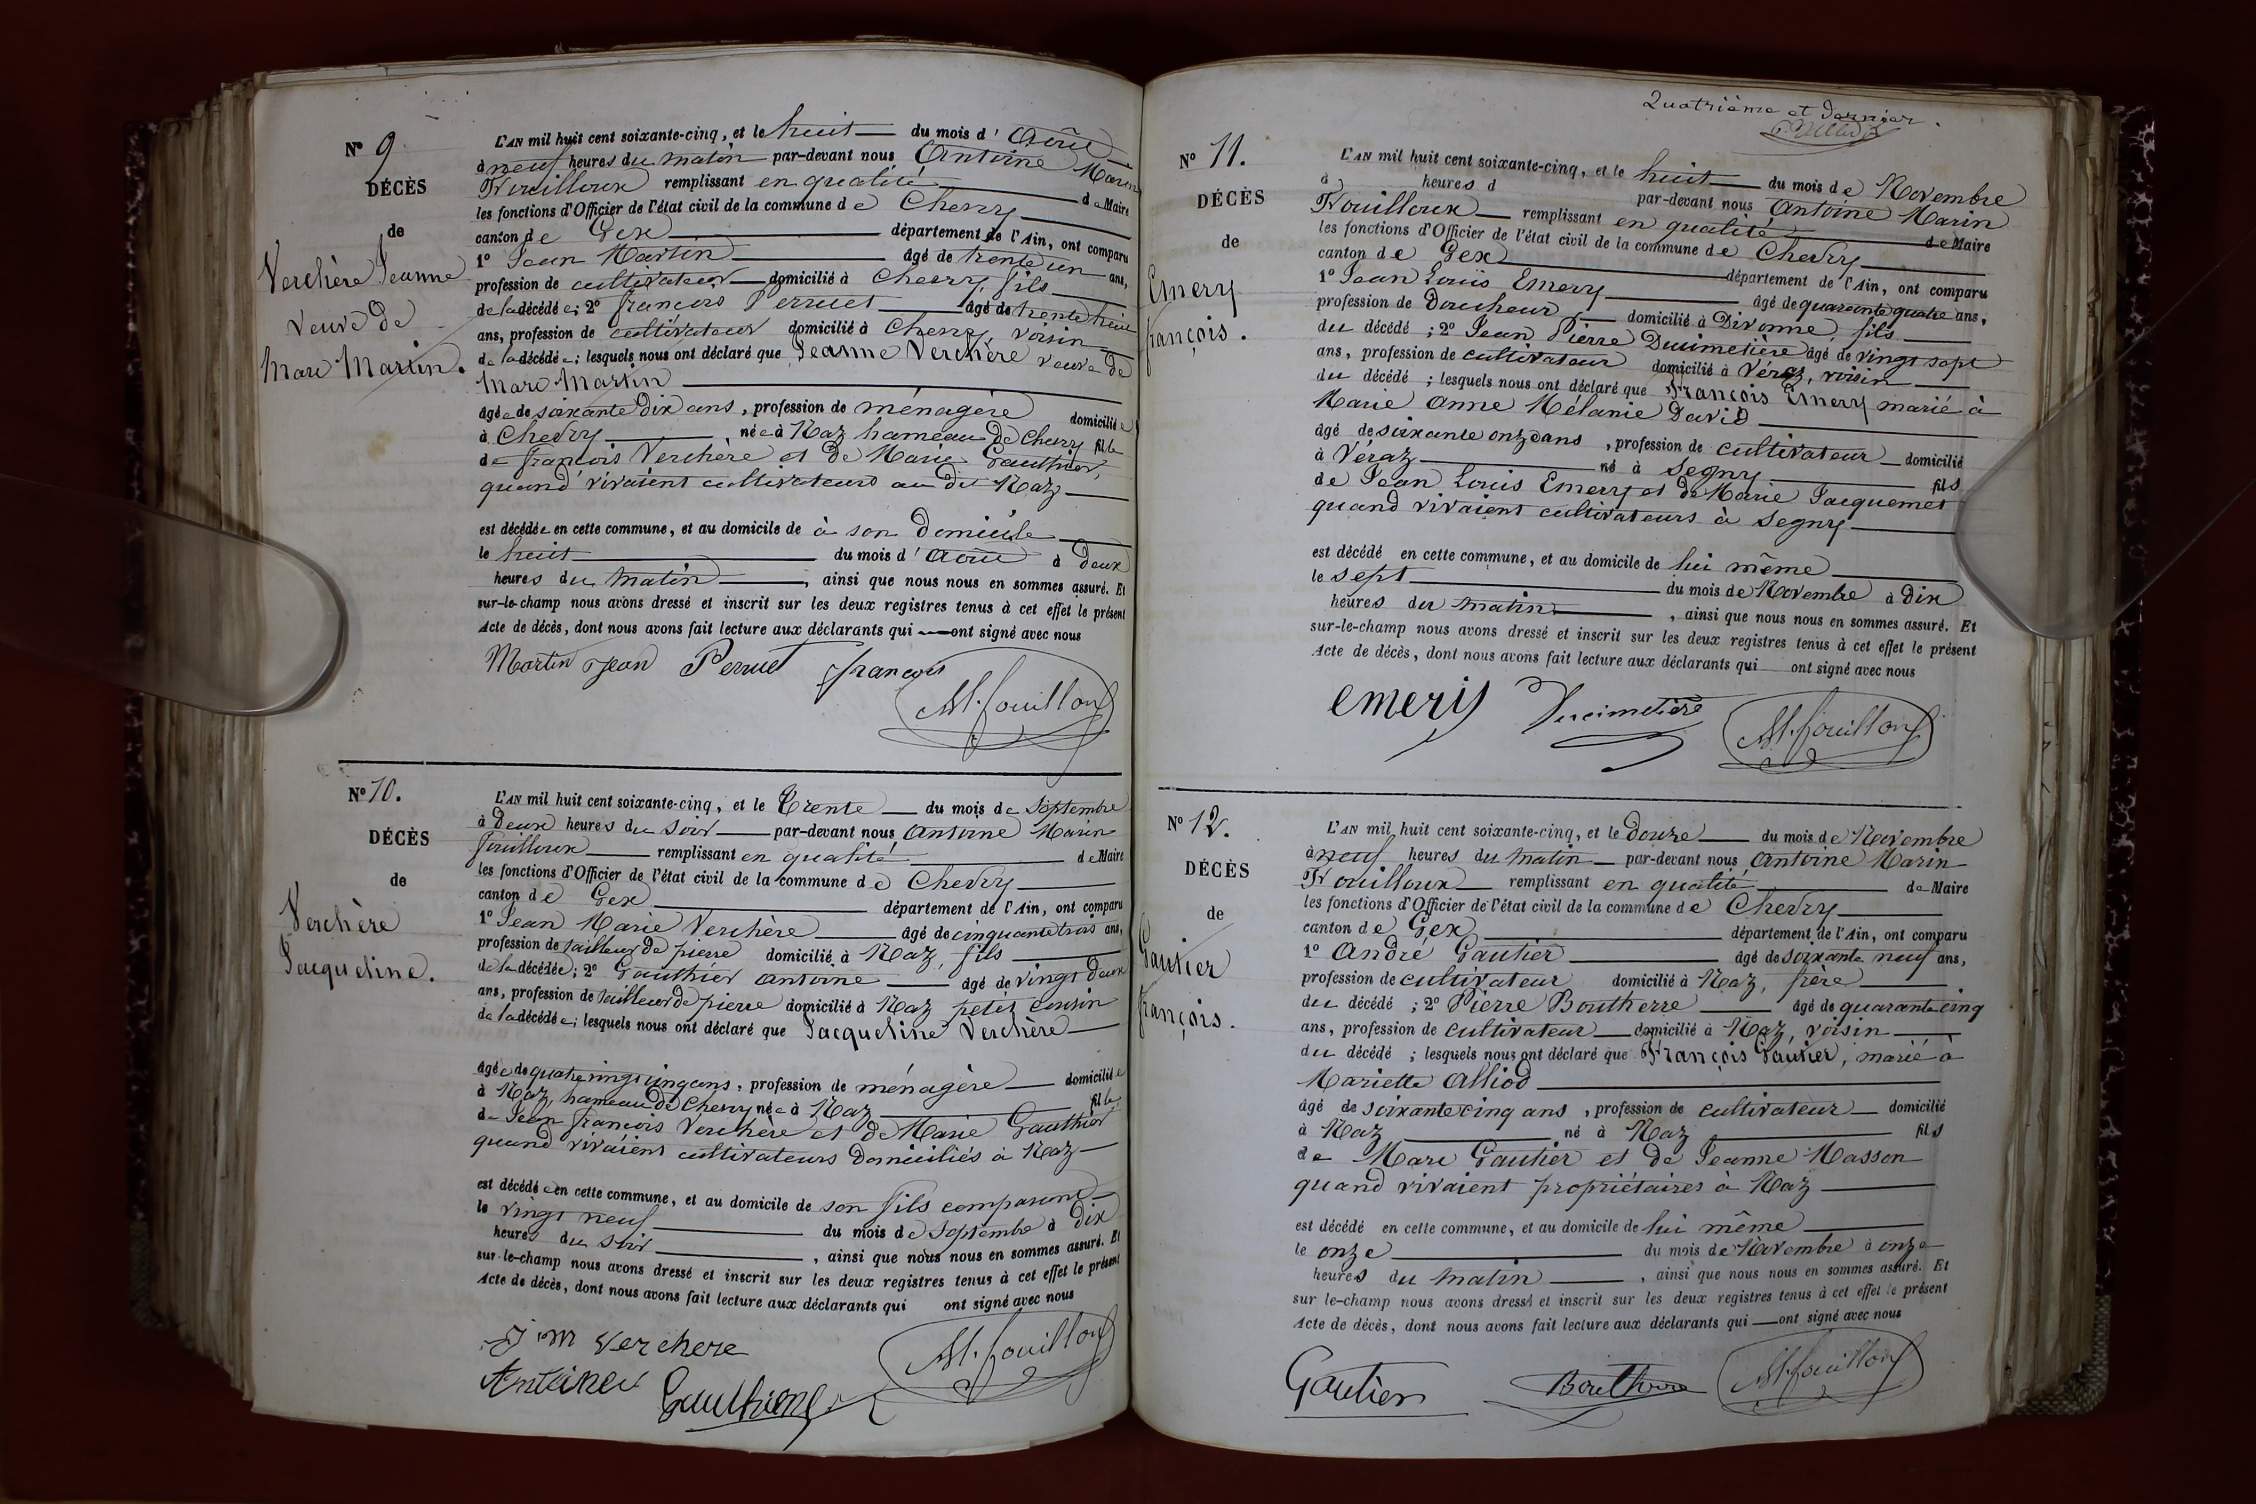 Nº 9
DÉCÈS
de
Verchère Jeanne
veuve de
Marc Martin.
L'AN mil huit cent soixante-cinq, et le huit du mois d' Août
à neuf heures du matin par-devant nous Antoine Marin
Fouilloux remplissant en qualité de Maire
les fonctions d'Officier de l'état civil de la commune de Chevry
canton de Gex département de l'Ain, ont comparu
1º Jean Martin âgé de trente un ans,
profession de cultivateur domicilié à Chevry, fils
de la décédée; 2º François Perruet âgé de trente huit
ans, profession de cultivateur domicilié à Chevry, voisin
de la décédée; lesquels nous ont déclaré que Jeanne Verchère veuve de
Marc Martin
âgée de soixante dix ans, profession de ménagère domiciliée
à Chevry née à Naz hameau de Chevry fille
de François Verchère et de Marie Gauthier,
quand vivaient cultivateurs au dit Naz
est décédée en cette commune, et au domicile de à son domicile
le huit du mois d' Août à deux
heures du matin, ainsi que nous nous en sommes assuré. Et
sur-le-champ nous avons dressé et inscrit sur les deux registres tenus à cet effet le présent
Acte de décès, dont nous avons fait lecture aux déclarants qui ont signé avec nous
Martin Jean Perruet françois
AM. fouilloux
Nº 10.
DÉCÈS
de
Verchère
Jacqueline.
L'AN mil huit cent soixante-cinq, et le Trente du mois de Septembre
à Deux heures du soir par-devant nous Antoine Marin
Fouilloux remplissant en qualité de Maire
les fonctions d'Officier de l'état civil de la commune de Chevry
canton de Gex département de l'Ain, ont comparu
1º Jean Marie Verchère âgé de cinquante trois ans,
profession de tailleur de pierre domicilié à Naz, fils
de la décédée; 2º Gauthier Antoine âgé de vingt deux
ans, profession de tailleur de pierre domicilié à Naz petit cousin
de la décédée; lesquels nous ont déclaré que Jacqueline Verchère
âgée de quatre vingt cinq ans, profession de ménagère domiciliée
à Naz, hameau de Chevry née à Naz fille
de Jean François Verchère et de Marie Gauthier
quand vivaient cultivateurs domiciliés à Naz
est décédée en cette commune, et au domicile de son fils comparant
le vingt neuf du mois de Septembre à dix
heures du soir, ainsi que nous nous en sommes assuré. Et
sur-le-champ nous avons dressé et inscrit sur les deux registres tenus à cet effet le présent
Acte de décès, dont nous avons fait lecture aux déclarants qui ont signé avec nous
J m verchere
Antoine Gauthier
AM. fouilloux
Quatrième et dernier.
Nº 11.
DÉCÈS
de
Emery
françois.
L'AN mil huit cent soixante-cinq, et le huit du mois de Novembre
à heures d par-devant nous Antoine Marin
Fouilloux remplissant en qualité de Maire
les fonctions d'Officier de l'état civil de la commune de Chevry
canton de Gex département de l'Ain, ont comparu
1º Jean Louis Emery âgé de quarante quatre ans,
profession de Doucheur domicilié à Divonne, fils
du décédé; 2º Jean Pierre Ducimetière âgé de vingt sept
ans, profession de cultivateur domicilié à Véraz, voisin
du décédé; lesquels nous ont déclaré que François Emery marié à
Marie Anne Mélanie David
âgé de soixante onze ans, profession de cultivateur domicilié
à Véraz né à Segny fils
de Jean Louis Emery et de Marie Jacquemet
quand vivaient cultivateurs à Segny
est décédé en cette commune, et au domicile de lui même
le sept du mois de Novembre à dix
heures du matin, ainsi que nous nous en sommes assuré. Et
sur-le-champ nous avons dressé et inscrit sur les deux registres tenus à cet effet le présent
Acte de décès, dont nous avons fait lecture aux déclarants qui ont signé avec nous
emery Ducimetière
AM. fouilloux
Nº 12.
DÉCÈS
de
Gautier
françois.
L'AN mil huit cent soixante-cinq, et le douze du mois de Novembre
à neuf heures du matin par-devant nous Antoine Marin
Fouilloux remplissant en qualité de Maire
les fonctions d'Officier de l'état civil de la commune de Chevry
canton de Gex département de l'Ain, ont comparu
1º André Gautier âgé de soixante neuf ans,
profession de cultivateur domicilié à Naz, frère
du décédé; 2º Pierre Boutherre âgé de quarante cinq
ans, profession de cultivateur domicilié à Naz, voisin
du décédé; lesquels nous ont déclaré que François Gautier, marié à
Mariette Alliod
âgé de soixante cinq ans, profession de cultivateur domicilié
à Naz né à Naz fils
de Marc Gautier et de Jeanne Masson
quand vivaient propriétaires à Naz
est décédé en cette commune, et au domicile de lui même
le onze du mois de Novembre à onze
heures du matin, ainsi que nous nous en sommes assuré. Et
sur le-champ nous avons dressé et inscrit sur les deux registres tenus à cet effet le présent
Acte de décès, dont nous avons fait lecture aux déclarants qui ont signé avec nous
Gautier Boutherre
AM. fouilloux